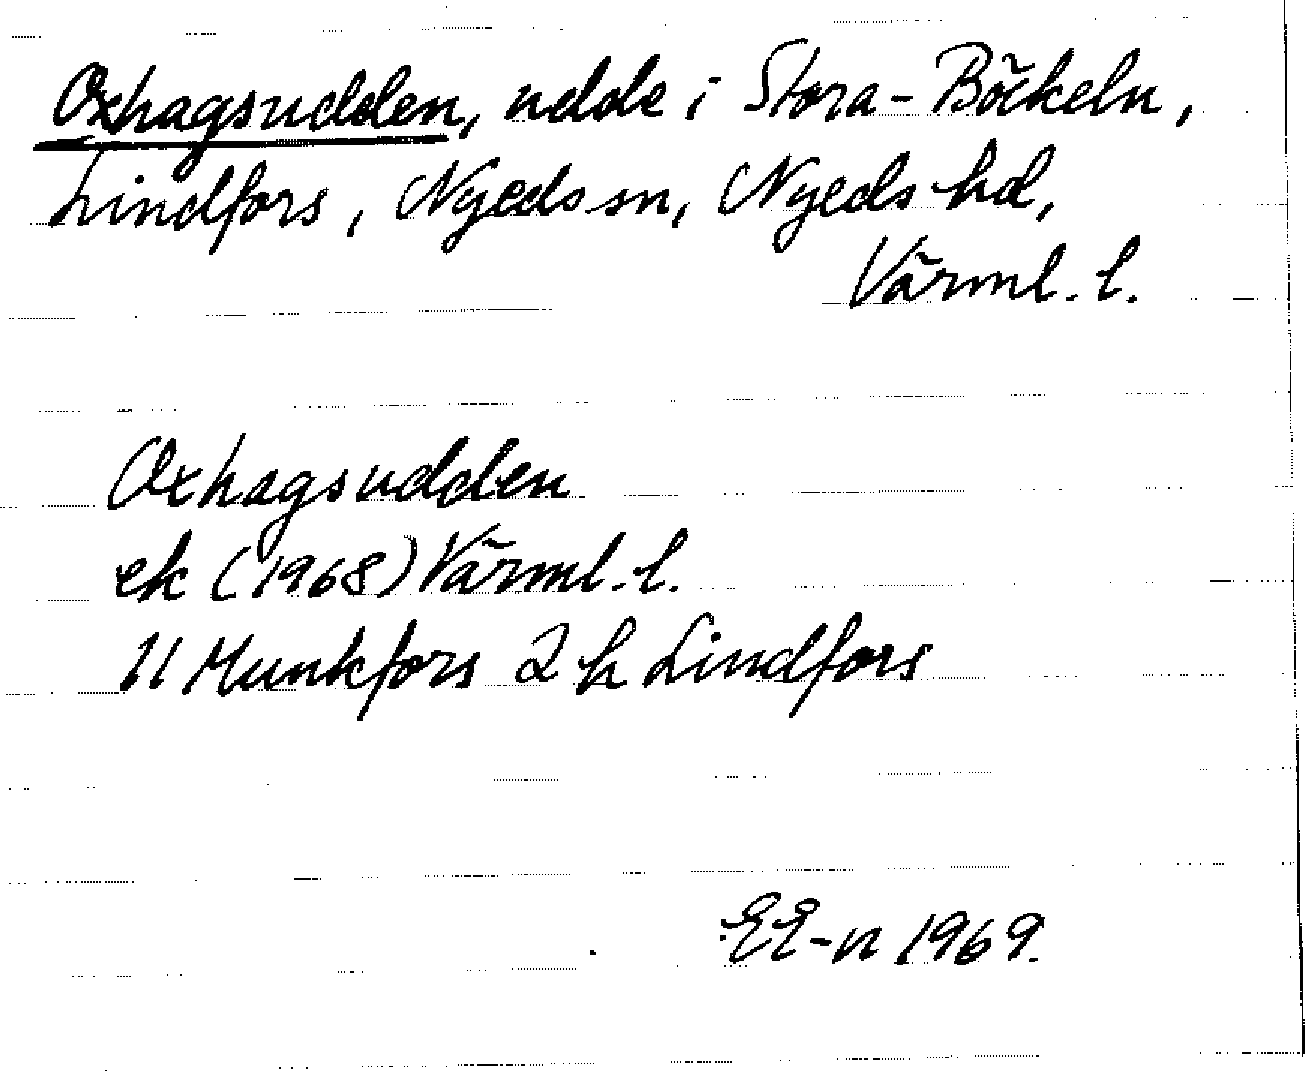 Oxhagsudden, udde i Stora-Böckeln,
Lindfors, Nyeds sn, Nyeds hd,
Värml. l.
Oxhagsudden
ek (1968) Värml. l.
11 Munkfors 2 h Lindfors
EE-n 1969.